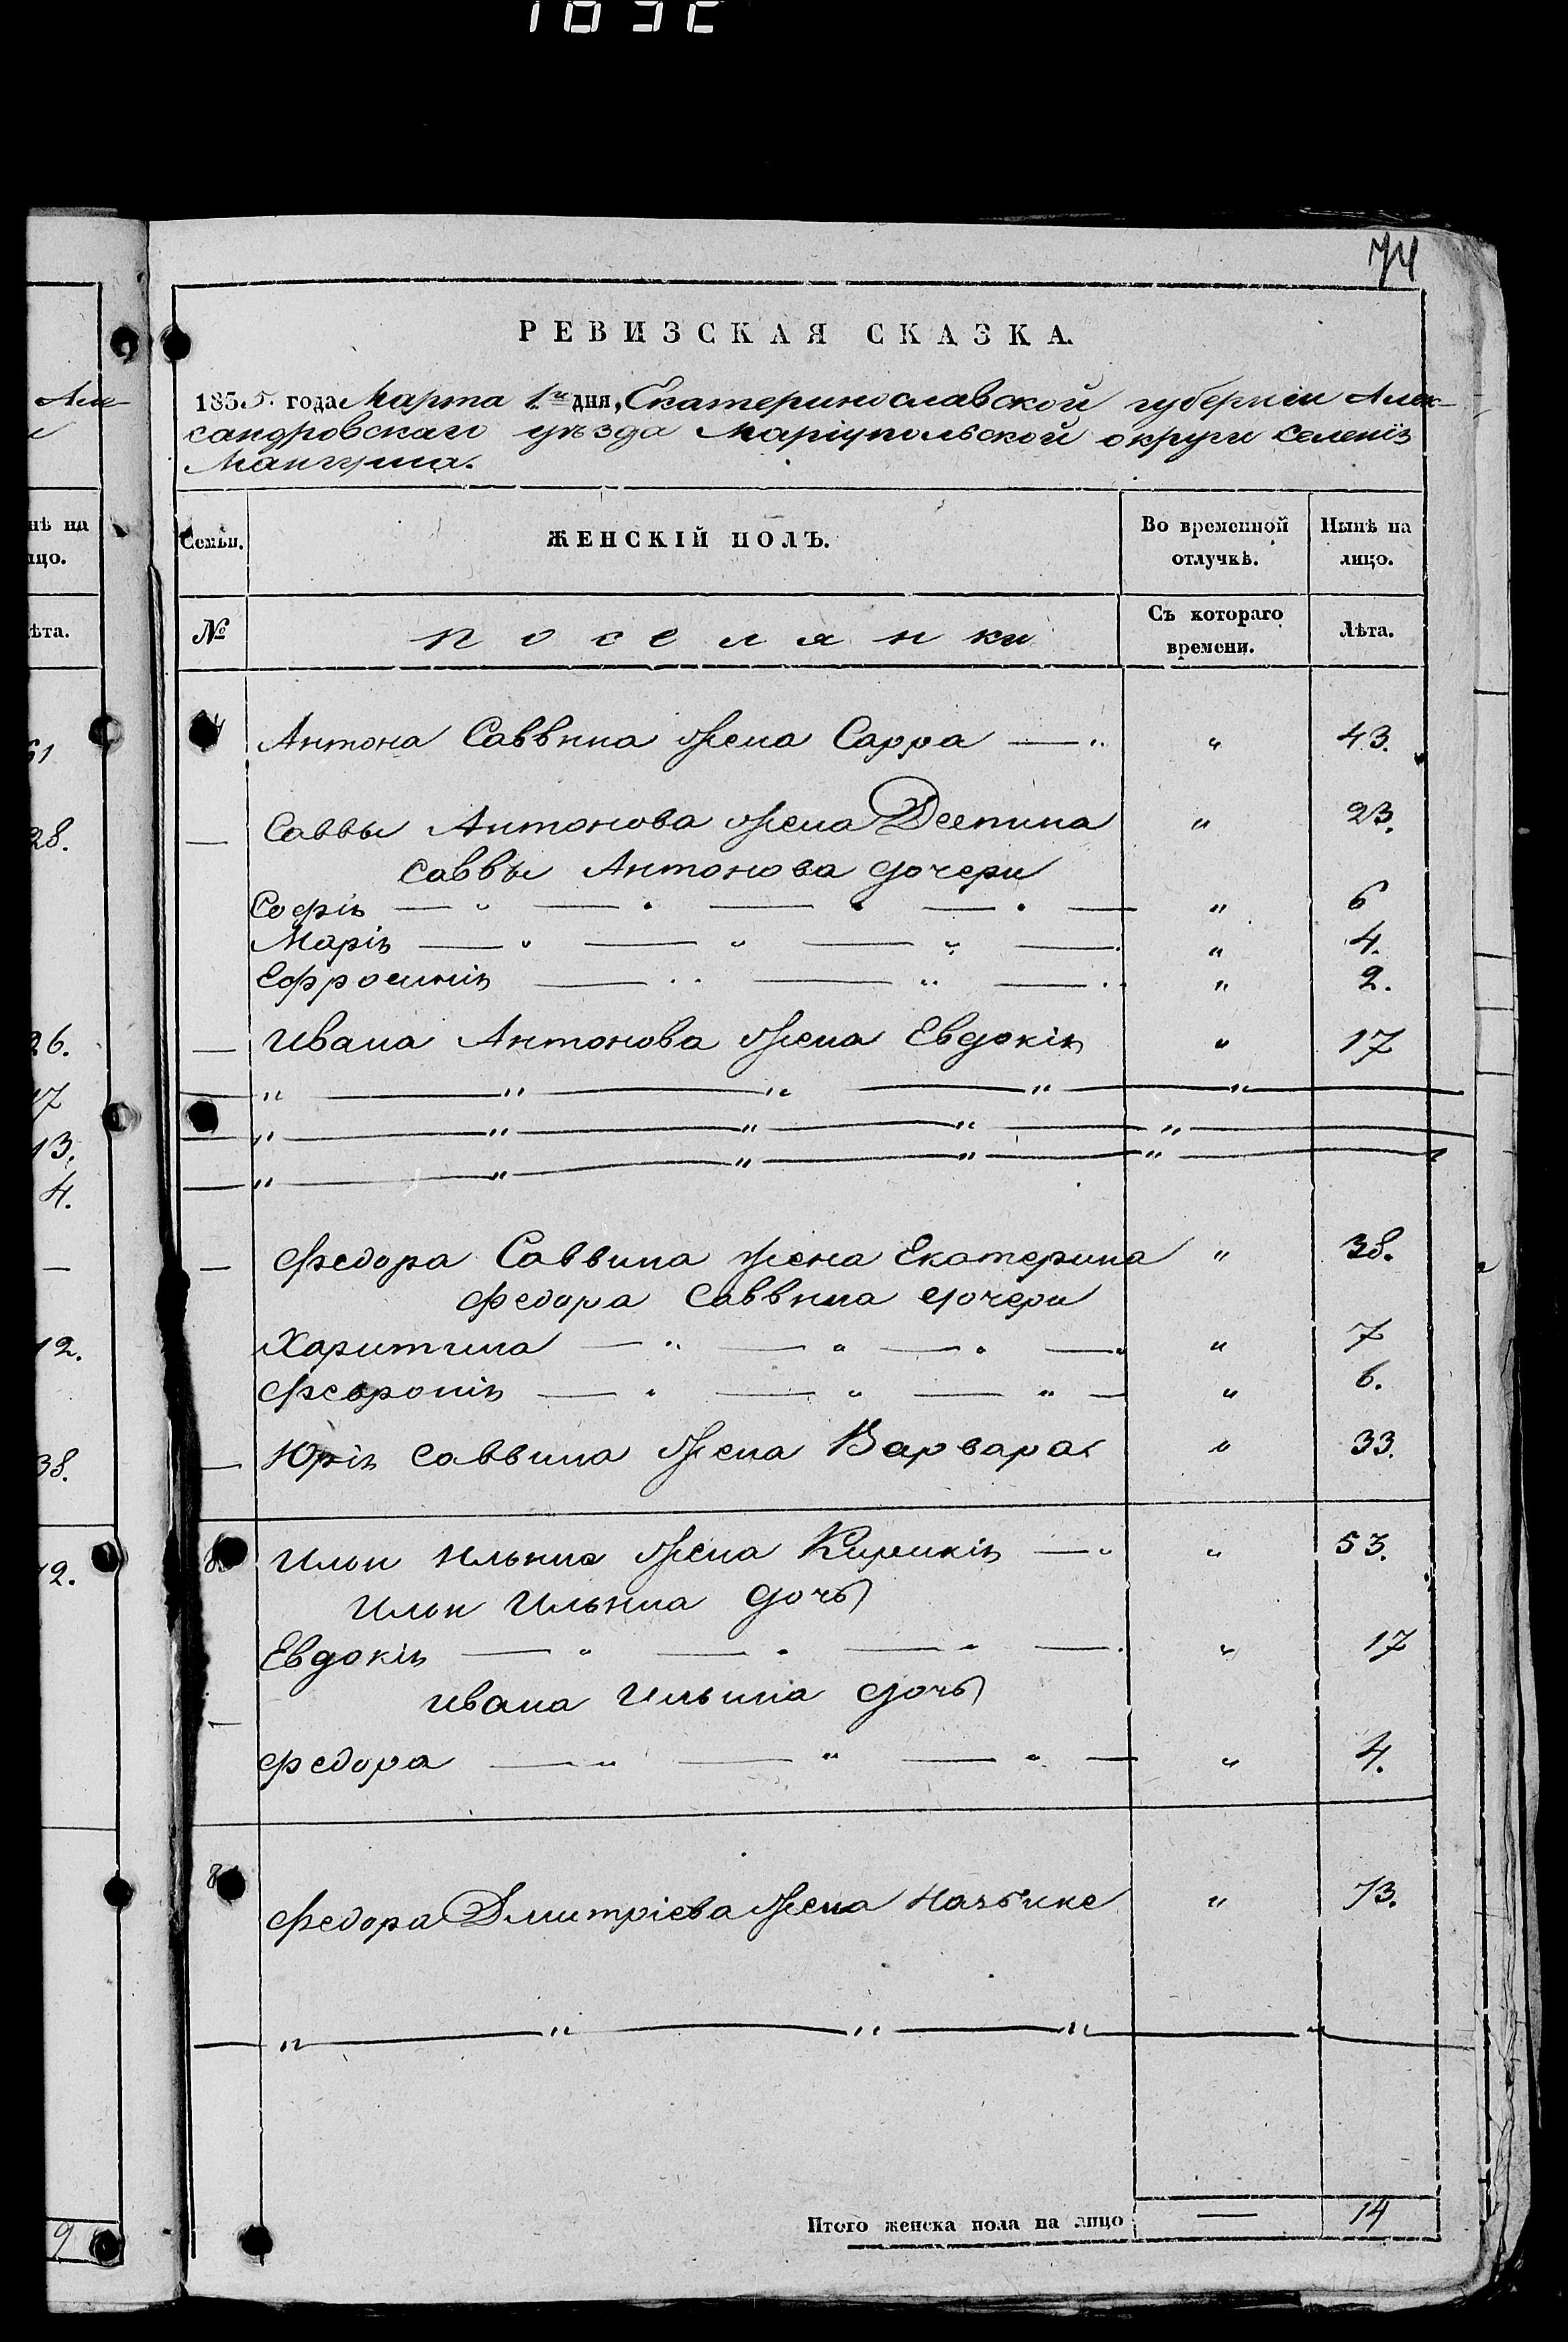 74
РЕВИЗСКАЯ СКАЗКА.
1855. года Марта 1го дня, Екатеринославской губерніи Алек-
сандровскаго уѣзда Маріупольской округи селенія
Мангуша.
Семьи.
ЖЕНСКІЙ ПОЛЪ.
Во временной отлучкѣ.
Нынѣ на лицо.
№
Поселянки
Съ котораго времени.
Лѣта.
Антона Саввина жена Сарра — " " 43.
— Саввы Антонова жена Деспина " 23.
Саввы Антонова дочери
Софія — " — " — " — " — " 6
Марія — " — " — " — " 4.
Ефросинія — " — " — " " 2.
— Ивана Антонова жена Евдокія " 17
— " — " — " — " — " —
— " — " — " — " — " —
— " — " — " — " — " —
— Федора Саввина жена Екатерина " 38.
Федора Саввина дочери
Харитина — " — " — " — " 7
Феvронія — " — " — " — " 6.
— Юрія Саввина жена Варвара " 33.
Ильи Ильина жена Кирикія — " " 53.
Ильи Ильина дочь
Евдокія — " — " — " — " 17
— Ивана Ильина дочь
Федора — " — " — " — " 4.
Федора Дмитріева жена " 73.
— " — " — " — " — " —
Итого женска пола на лицо — 14